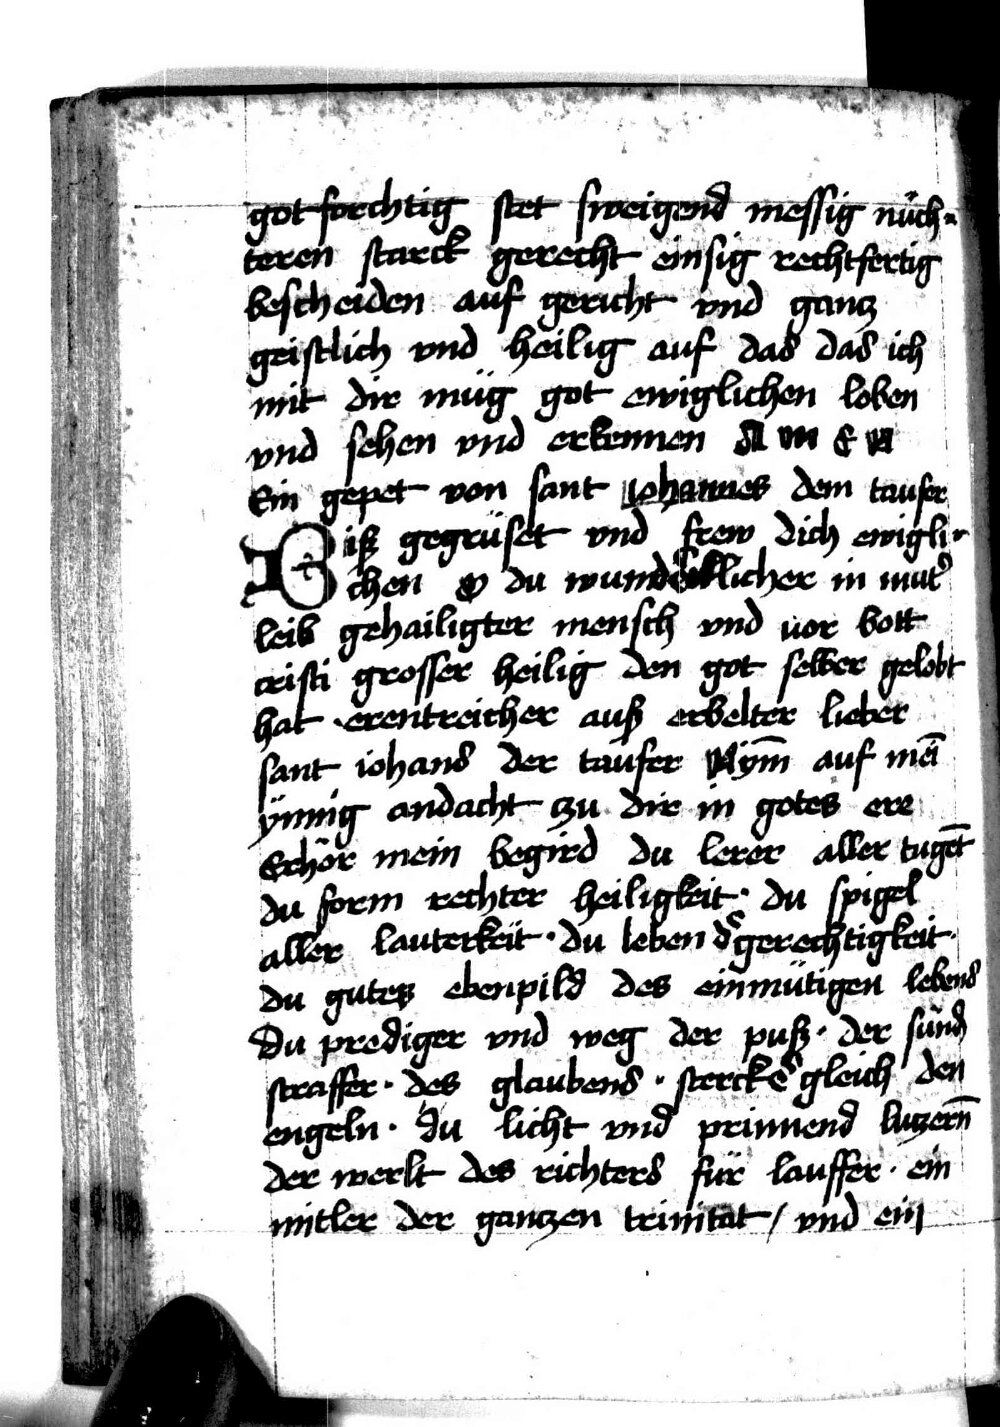 got forchtig stet sweigend messig nüch-
teren starck gerecht einsig rechtfertig
bescheiden auf gericht vnd gancz
geistlich vnd heilig auf das das ich
mit dir müg got ewiglichen loben
vnd sehen vnd erkennen A m e n
Ein gepet von sant iohannes dem taufer
Biß gegrüset vnd frew dich ewigli-
chen o du licher in muter
leib gehailigter mensch vnd uor bott
cristi grosser heilig den got selber gelobt
hat · erentreicher auß erbelter lieber
sant iohans der taufer Nym̄ auf mei̅
ynnig andacht czu dir in gotes ere
Erhör mein begird du lerer aller tuge̅t
du form rechter heiligkeit · du spigel
aller lauterkeit · du leben d' gerechtigkeit ·
du gutes ebenpild des einmütigen lebens
Du prediger vnd weg der puß · der sünd
straffer · des glaubens · sterck' gleich den
engeln · du licht vnd prinnend luczern̄
der werlt des richters für lauffer · ein
mitler der ganczen trinitat / vnd ein